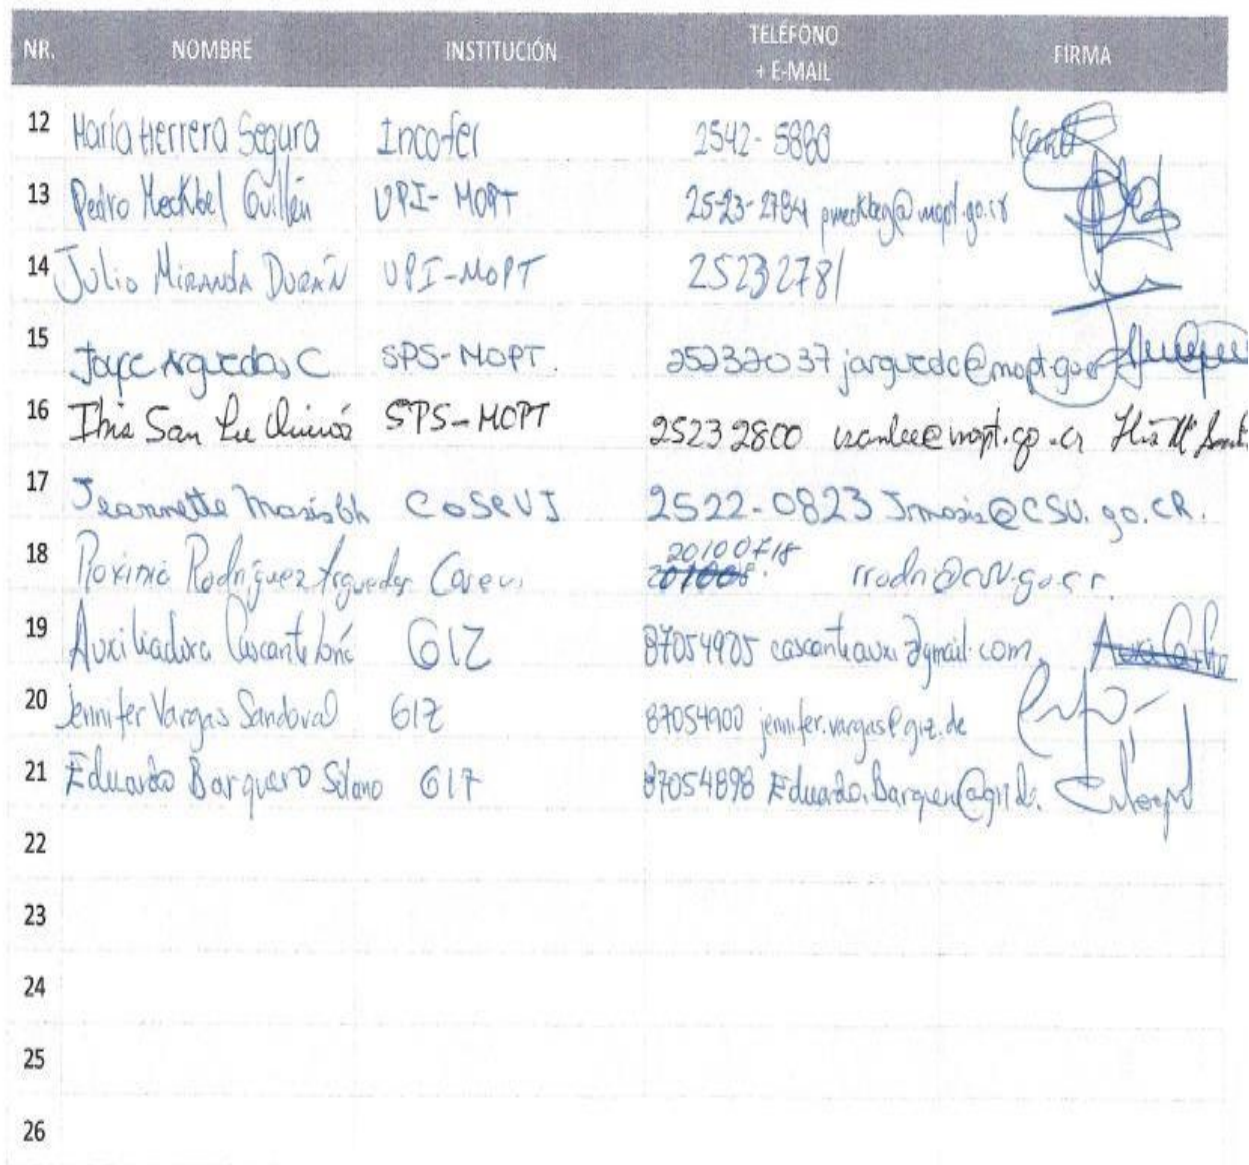 NR. NOMBRE INSTITUCIÓN TELÉFONO + E-MAIL FIRMA
12 María Herrera Segura Incofer 2542-5880
13 Pedro Meckbel Guillén UPI-MOPT 25-23-2784 pmeckbeg@mopt.go.cr
14 Julio MIRANDA DURÁN UPI-MOPT 25232781
15 Arguedas C SPS-MOPT 25232037 jarguedc@mopt.go.cr
16 San Lee SPS-MOPT 25232800 isanlee@mopt.go.cr
17 Jeannette Masís COSEVI 2522-0823 Jmasis@CSV.go.CR.
18 Rodríguez Arguedas Cosevi 20100718 rrodri@csv.go.cr
19 Auxiliadora Cascante GIZ 87054905 cascanteauxi@gmail.com
20 Jennifer Vargas Sandoval GIZ 87054900 jennifer.vargas@giz.de
21 Eduardo Barquero Solano GIZ 87054898
22
23
24
25
26